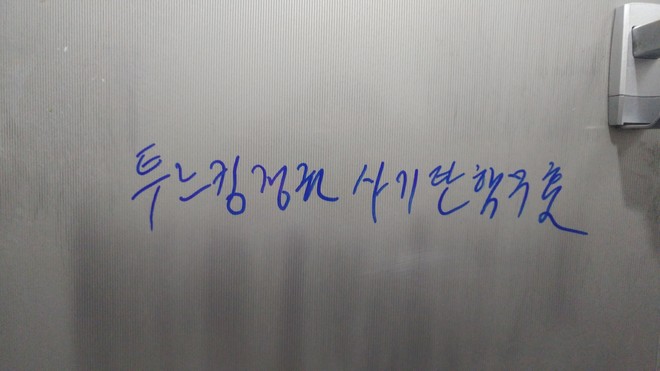 투느킹정권 사기탄핵무효